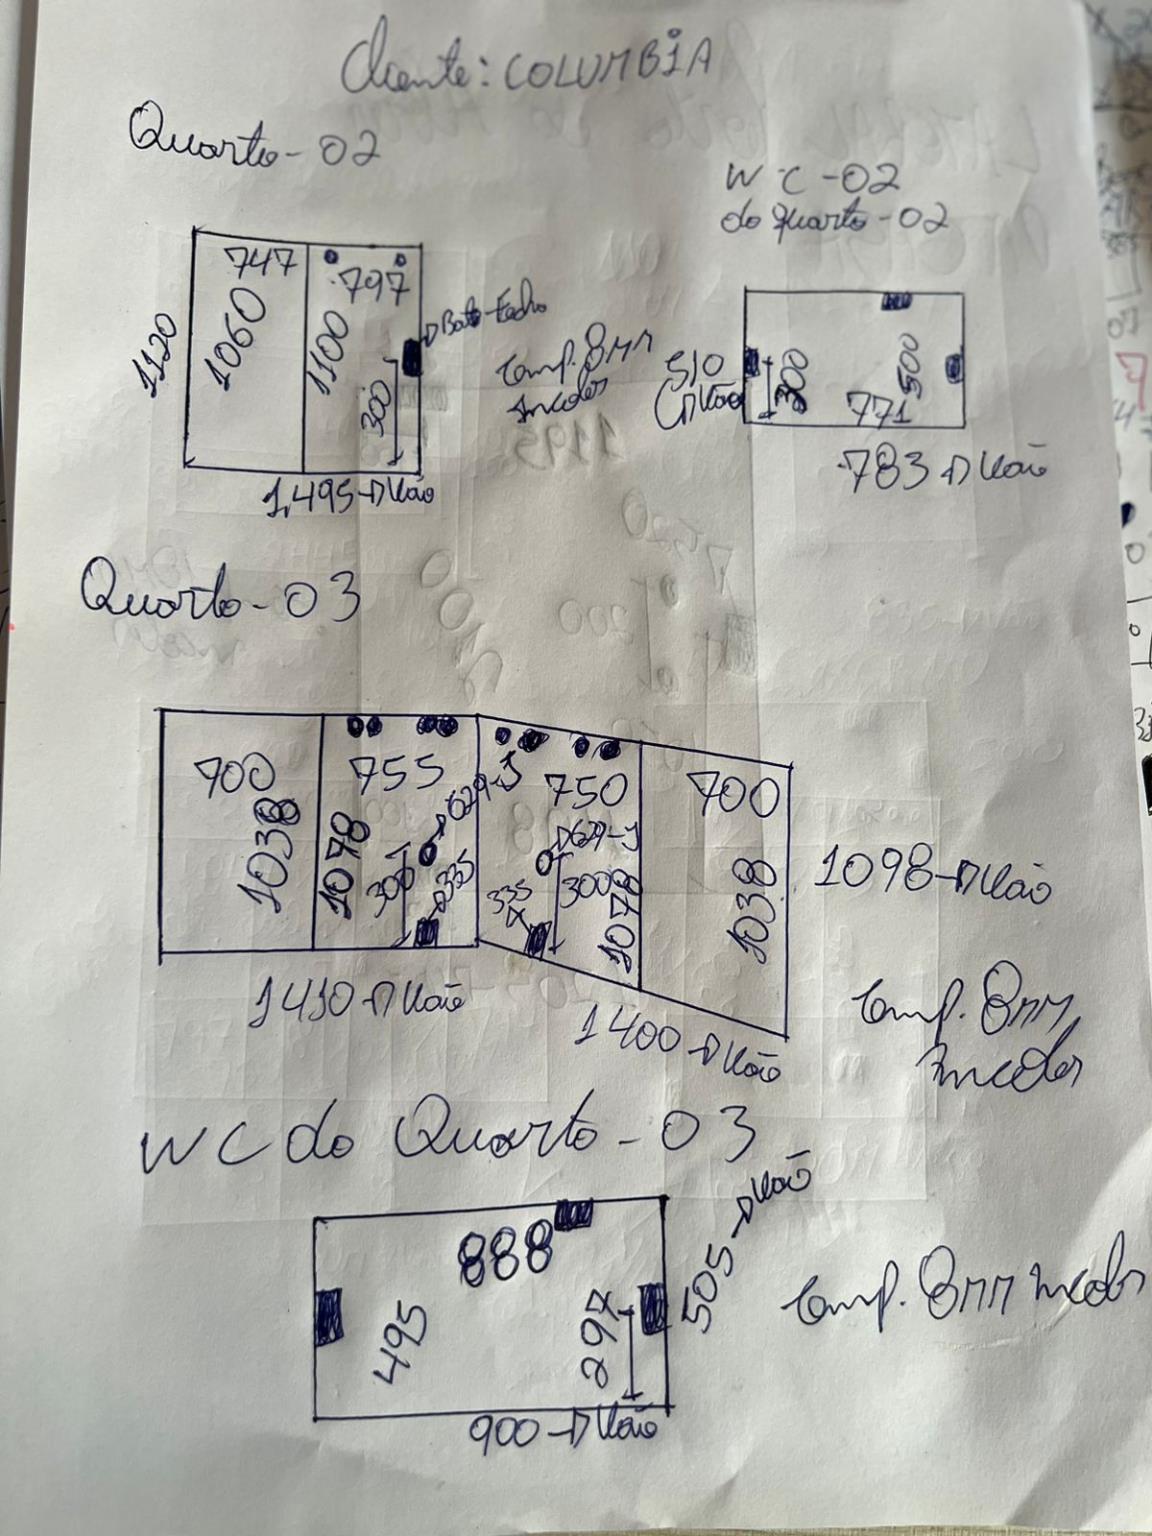 Cliente: COLUMBIA
Quarto-02
WC-02
do quarto-02
747
797
1120
1060
1100
300
Bate-Fecho
Temp. 8mm
Incolor
1.495→Vão
510
Vão
300
500
771
783→Vão
Quarto-03
700
1038
755
1078
629-J
300
335
750
629-J
300
335
1078
700
1038
1098→Vão
1410→Vão
1400→Vão
Temp. 8mm
Incolor
WC do Quarto-03
888
495
297
505→Vão
900→Vão
Temp. 8mm Incolor